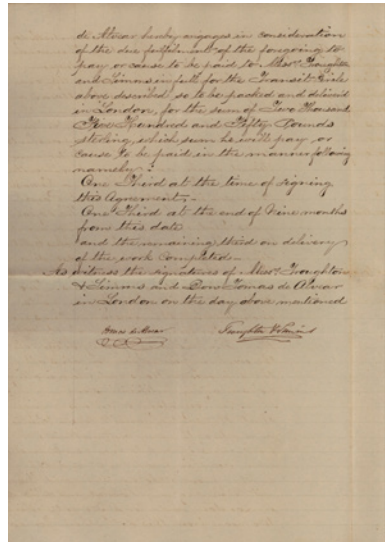 de Alvear hereby engages in consideration
of the due fulfilment of the foregoing to
pay or cause to be paid to Messrs. Troughton
and Simms in full for the Transit Circle
above described, so to be packed and delivered
in London, for the sum of Two Thousand
Five Hundred and Fifty Pounds
sterling, which sum he will pay, or
cause to be paid in the manner following
namely:
One Third at the time of signing
this Agreement,-
One Third at the end of Nine months
from this date
and the remaining third on delivery
of the work completed-
As witness the signatures of Messrs. Troughton
& Simms and Don Tomas de Alvear
in London on the day above mentioned
de Alvear Troughton & Simms